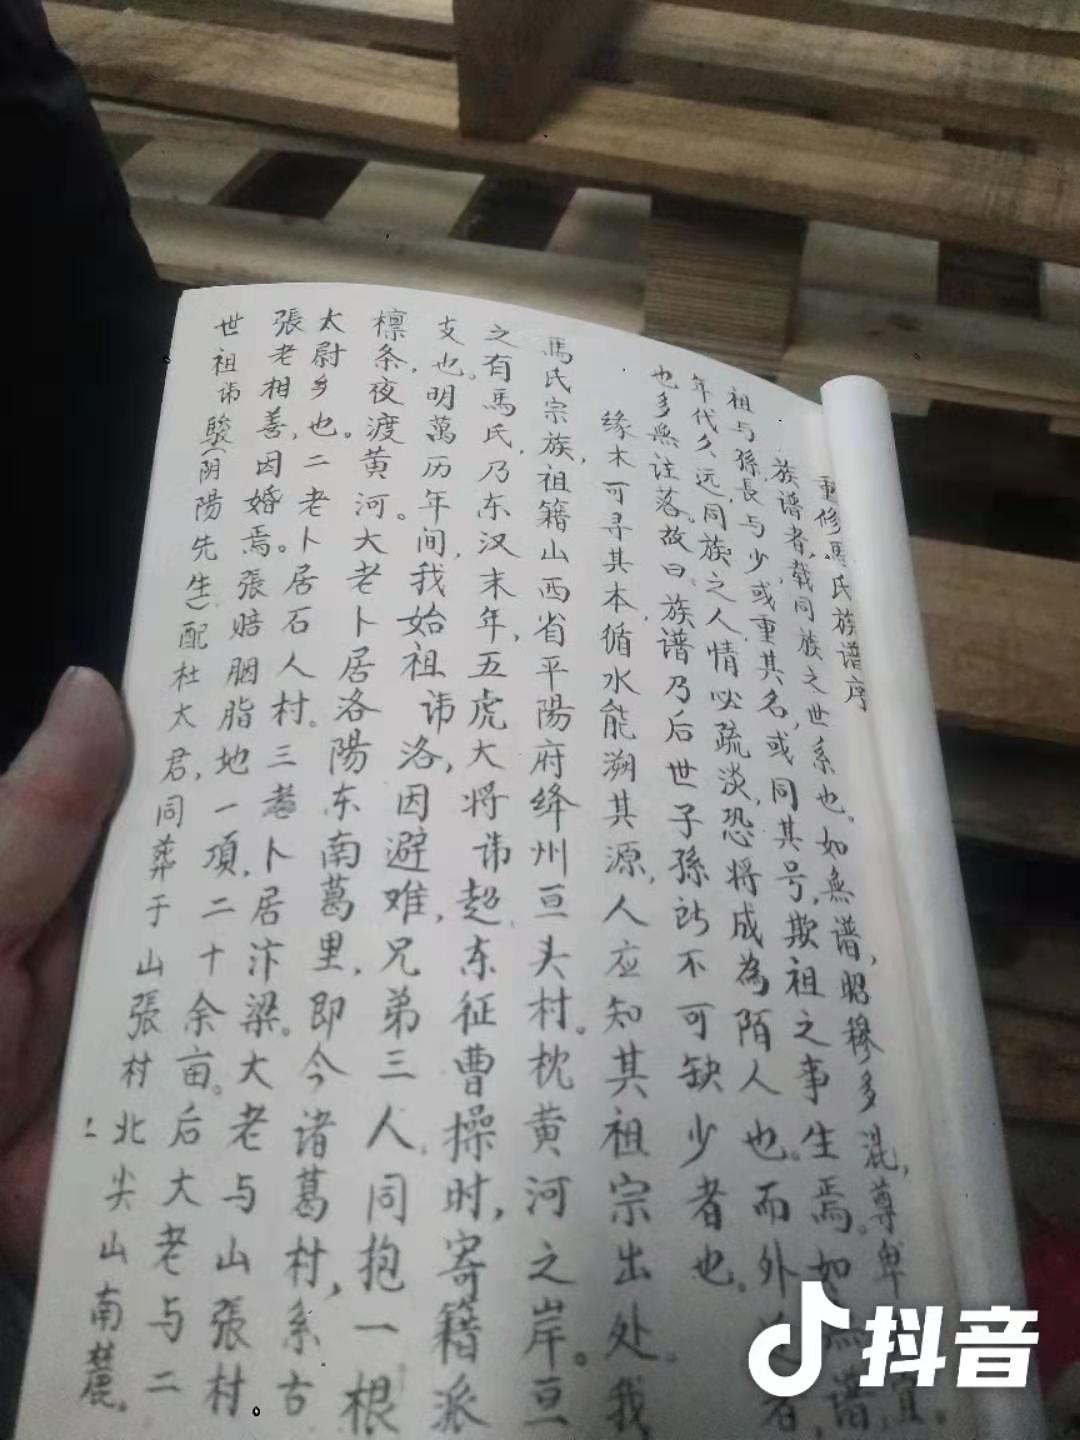 重修馬氏族谱序
族谱者，载同族之世系也。如無谱，昭穆多混，尊卑 宜。
祖与孫，長与少，或重其名，或同其号，欺祖之事生焉。如 谱
年代久远，同族之人情必疏淡，恐将成為陌人也。而外 者，
也多無注落。故曰，族谱乃后世子孫所不可缺少者也。
缘木可寻其本，循水能溯其源，人应知其祖宗出处。我
馬氏宗族，祖籍山西省平陽府绛州亘头村。枕黄河之岸。亘
之有馬氏，乃东汉末年，五虎大将讳超东征曹操时，寄籍派
支也。明萬历年间，我始祖讳洛，因避难，兄弟三人同抱一根
檩条，夜渡黄河。大老卜居洛陽东南葛里，即今诸葛村，系古
太尉乡也。二老卜居石人村。三老卜居汴梁。大老与山張村
張老相善，因婚焉。張赔胭脂地一項，二十余亩。后大老与二
世祖讳駿(阴陽先生)配杜太君，同葬于山張村北尖山南麓，
抖音